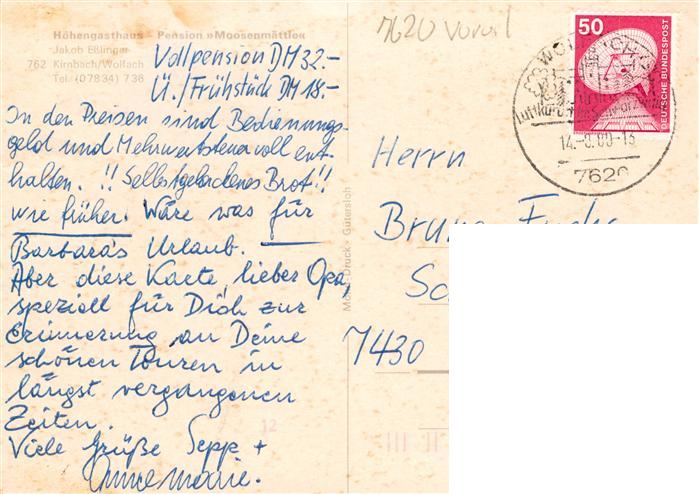 Höhengasthaus - Pension »Moosenmättle«
Jakob Eßlinger
762 Kirnbach/Wolfach
Tel. (07834) 736
Vollpension DM 32.-
Ü./Frühstück DM 18.-
In den Preisen sind Bedienungs-
geld und Mehrwertsteuer voll ent-
halten. !! Selbstgebackenes Brot!!
wie früher. Wäre was für
Barbara's Urlaub.
Aber diese Karte, lieber Opa,
speziell für Dich zur
Erinnerung an Deine
schönen Touren in
längst vergangenen
Zeiten.
Viele Grüße Sepp +
Annemarie.
Gütersloh
7620
50
DEUTSCHE BUNDESPOST
7620
Herrn
7430
12